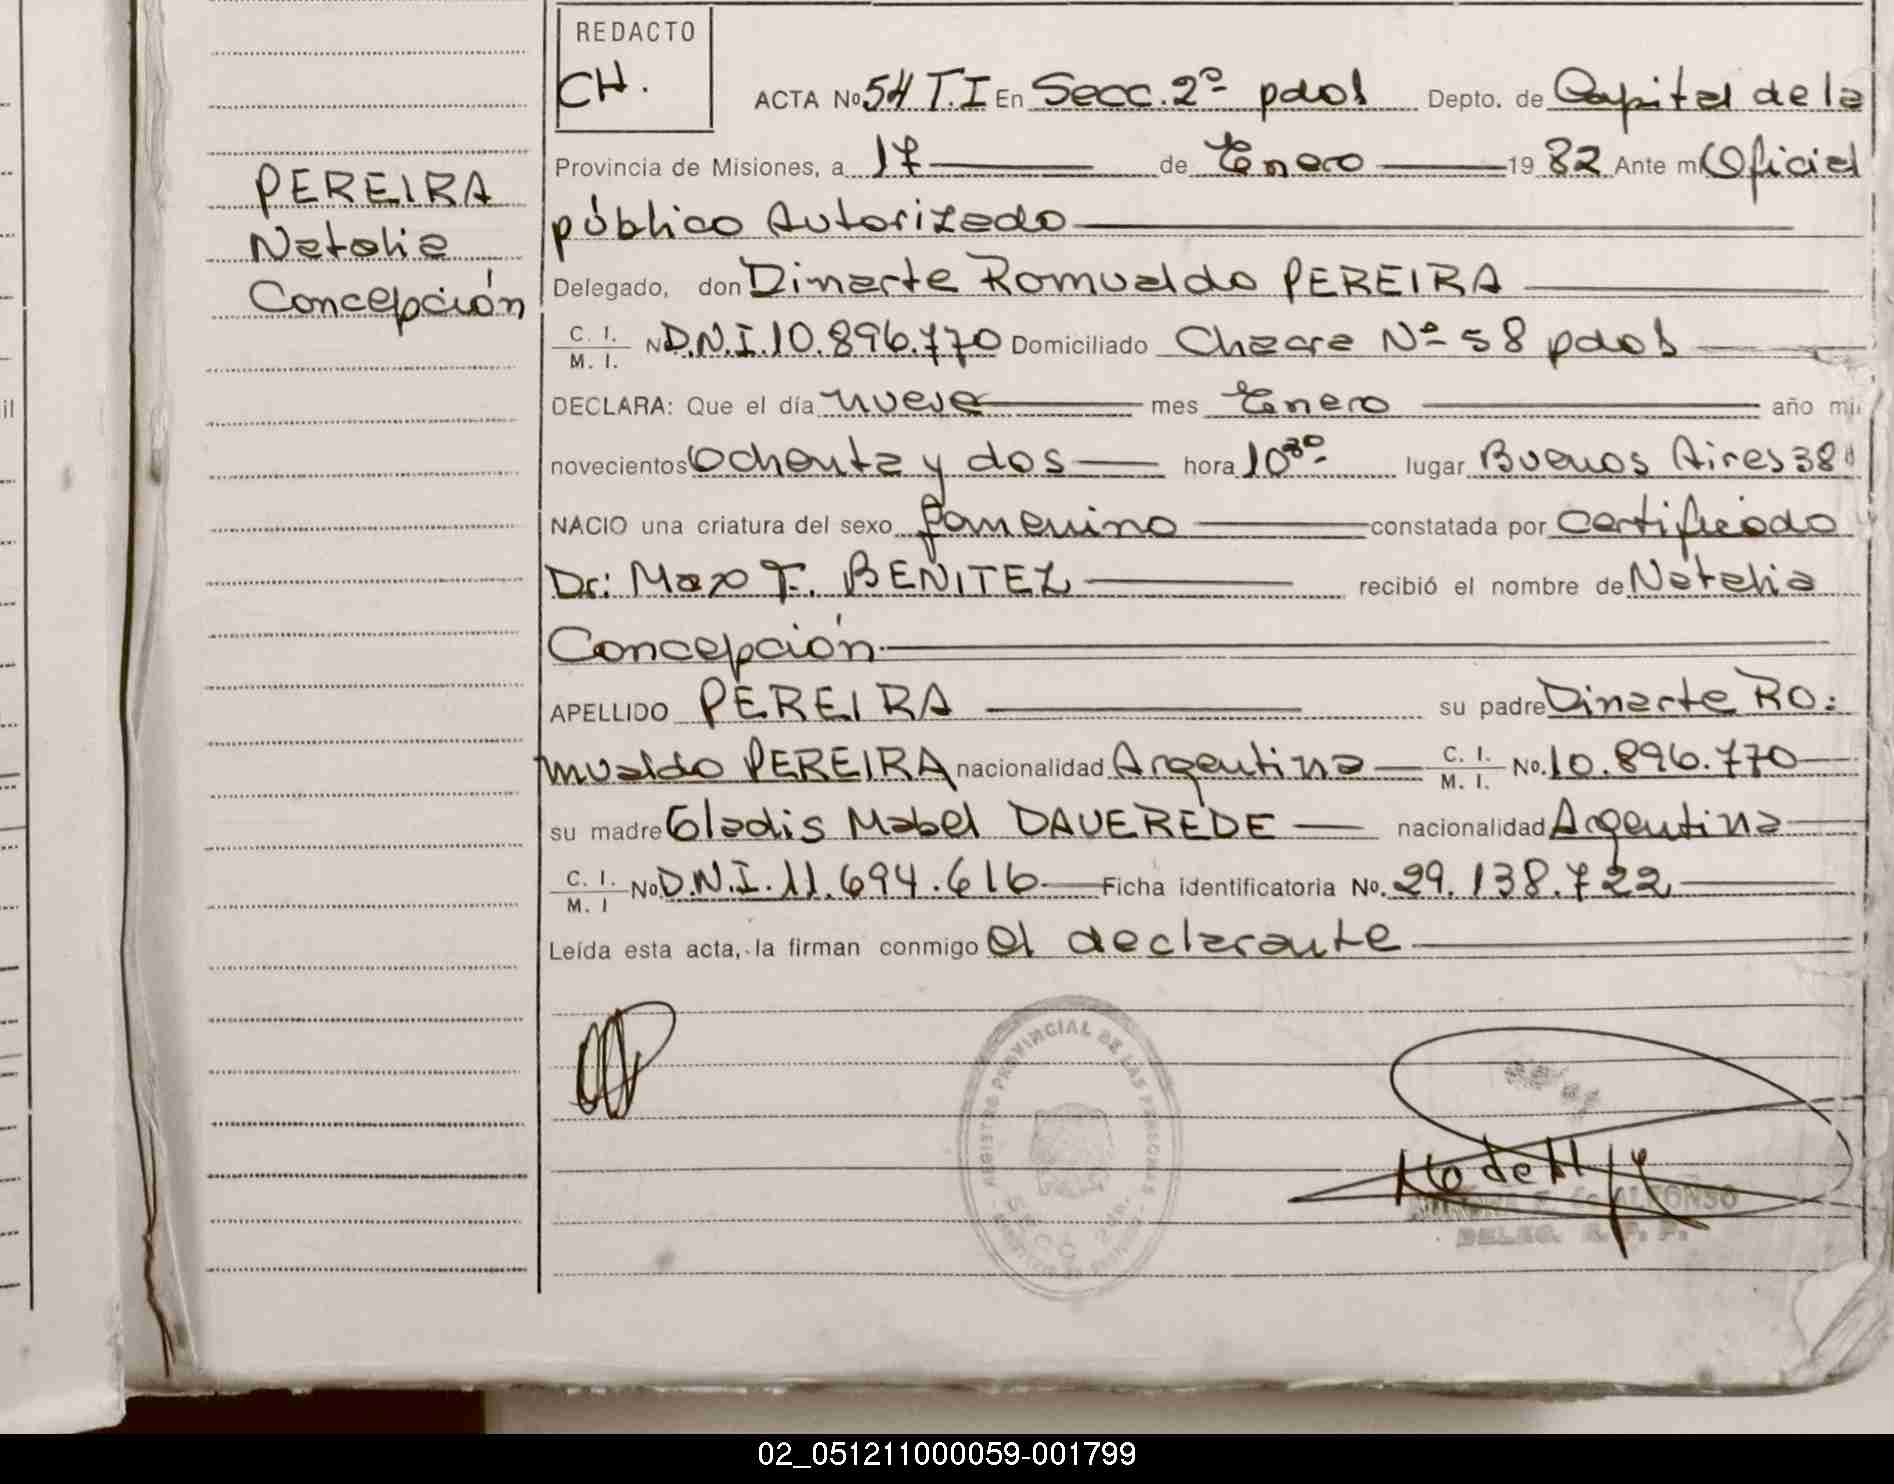 REDACTO
CH.
ACTA No 54 T.I En Secc. 2º pdas Depto. de Capital de la
Provincia de Misiones, a 17 de Enero 1982 Ante mi Oficial
público Autorizado
PEREIRA
Natalia
Concepción
Delegado, don Dinarte Romualdo PEREIRA
C. I. M. I. No D.N.I. 10.896.770 Domiciliado Chacra Nº 58 pdas
DECLARA: Que el día nueve mes Enero año mil
novecientos ochenta y dos hora 10 30 lugar Buenos Aires 38
NACIO una criatura del sexo femenino constatada por certificado
Dr: Mazo F. BENITEZ recibió el nombre de Natalia
Concepción
APELLIDO PEREIRA su padre Dinarte Ro:
mualdo PEREIRA nacionalidad Argentina C. I. M. I. No. 10.896.770
su madre Gladis Mabel DAVEREDE nacionalidad Argentina
C. I. M. I No D.N.I. 11.694.616 Ficha identificatoria No. 29.138.722
Leída esta acta, la firman conmigo el declarante
REGISTRO PROVINCIAL DE LAS PERSONAS
de ALFONSO
DELEG. R. P. P.
02_051211000059-001799